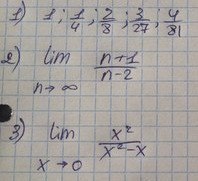 1) 1; 1/4; 2/8; 3/27; 4/81
2) lim n→∞ (n+1)/(n-2)
3) lim x→0 x²/(x²-x)